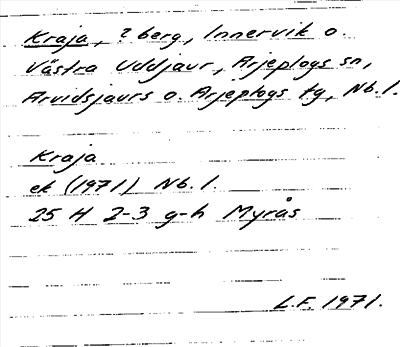 Kraja, ? berg, Innervik o.
Västra Uddjaur, Arjeplogs sn,
Arvidsjaurs o. Arjeplogs tg, Nb. l.
Kraja
ek (1971) Nb. l.
25 H 2-3 g-h Myrås
L.F. 1971.